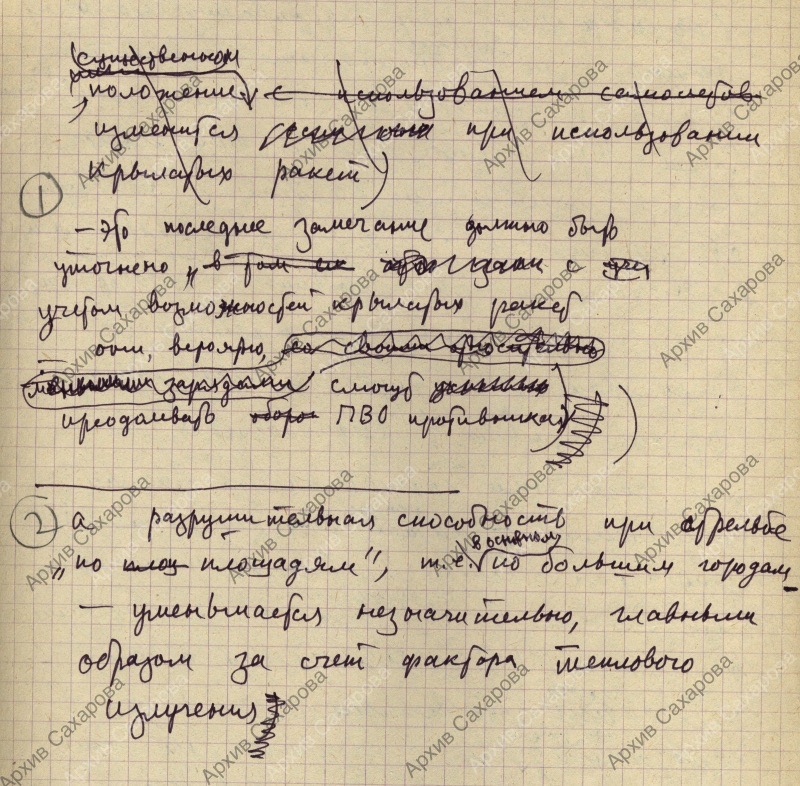 существенном
положение с использованием самолетов
изменится при использовании
крылатых ракет)
1
— Это последнее замечание должно быть
уточнено „в том с
учетом возможностей крылатых ракет
— они, вероятно, со своими относительно
меньшими зарядами смогут
преодолевать оборо ПВО противника)
2 а разрушительная способность при стрельбе
в основном
„по площадям“, т.е. по большим городам,
— уменьшается незначительно, главным
образом за счет фактора теплового
излучения
Архив Сахарова